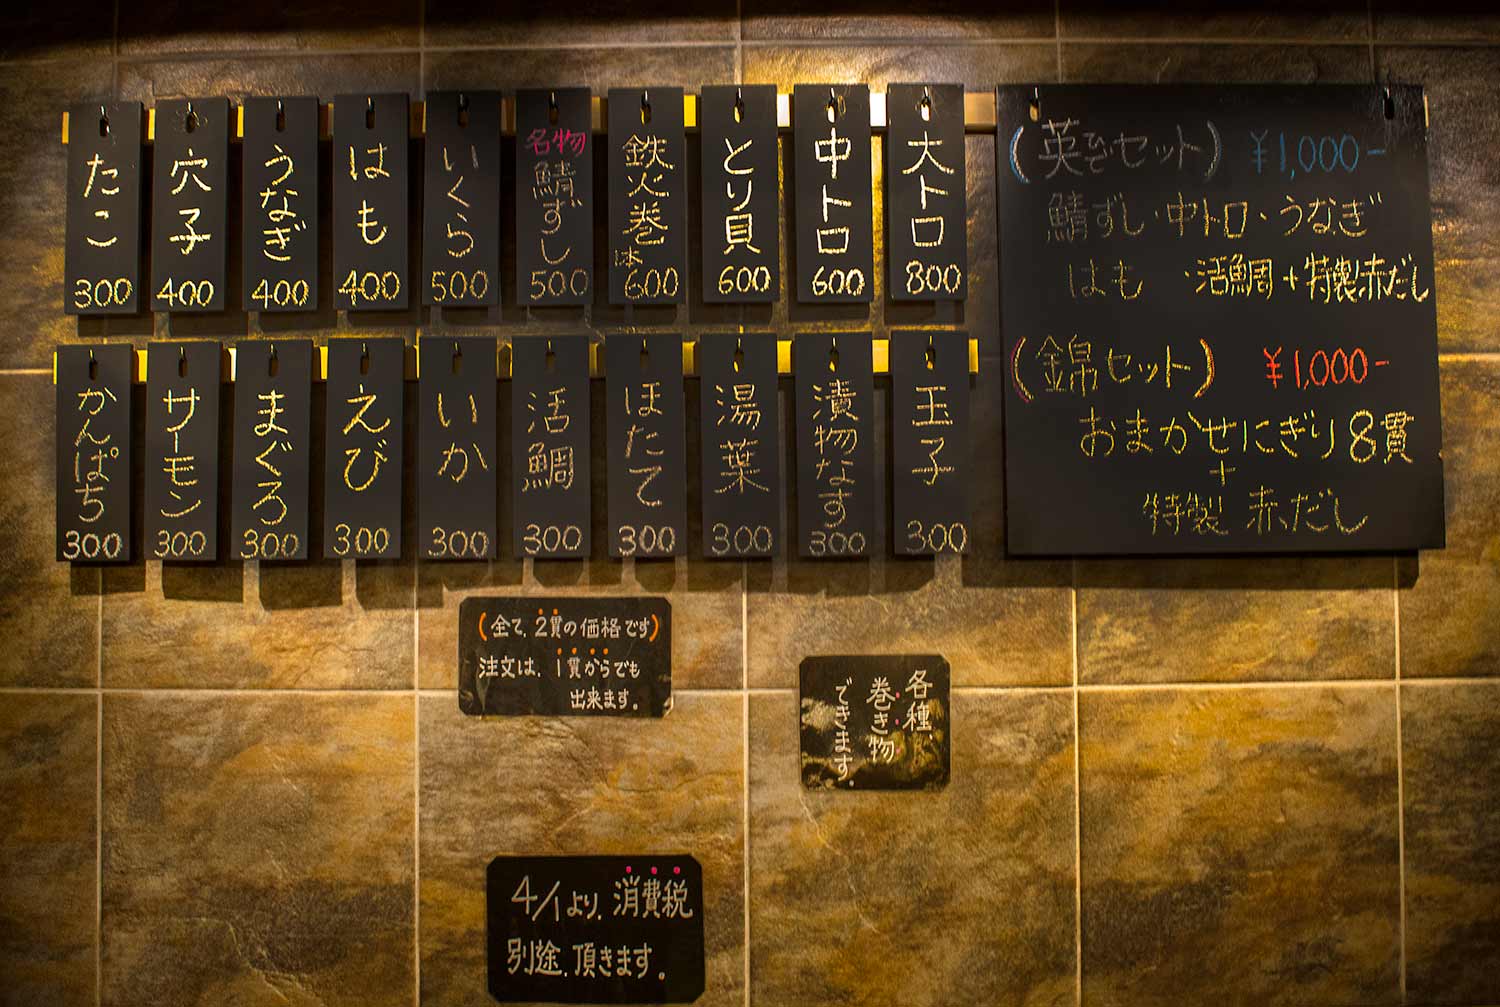 たこ
300
穴子
400
うなぎ
400
はも
400
いくら
500
名物
鯖ずし
500
鉄火巻
一本
600
とり貝
600
中トロ
600
大トロ
800
かんぱち
300
サーモン
300
まぐろ
300
えび
300
いか
300
活鯛
300
ほたて
300
湯葉
300
漬物なす
300
玉子
300
(英セット) ¥1,000-
鯖ずし・中トロ・うなぎ
はも ・活鯛+特製赤だし
(錦セット) ¥1,000-
おまかせにぎり8貫
+
特製 赤だし
(全て、2貫の価格です)
注文は、1貫からでも
出来ます。
各種、
巻き物
できます。
4/1より、消費税
別途、頂きます。